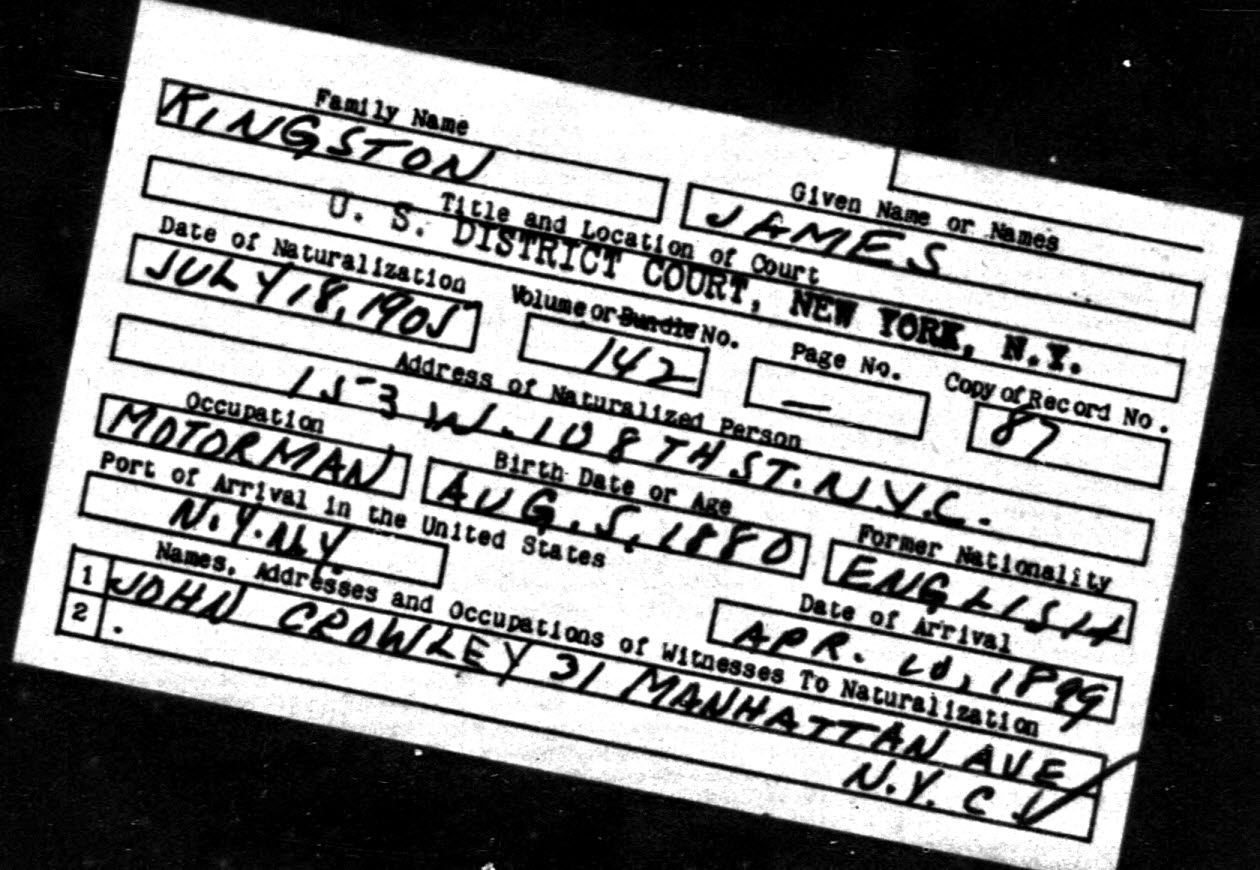 Family Name
KINGSTON
Given Name or Names
JAMES
Title and Location of Court
U. S. DISTRICT COURT, NEW YORK, N.Y.
Date of Naturalization
JULY 18, 1905
Volume or Bundle No.
142
Page No.
—
Copy of Record No.
87
Address of Naturalized Person
153 W. 108TH ST. N.Y.C.
Occupation
MOTORMAN
Birth Date or Age
AUG. 5, 1880
Former Nationality
ENGLISH
Port of Arrival in the United States
N.Y. N.Y.
Date of Arrival
APR. 10, 1899
Names, Addresses and Occupations of Witnesses To Naturalization
1 JOHN CROWLEY 31 MANHATTAN AVE
2 . N.Y.C